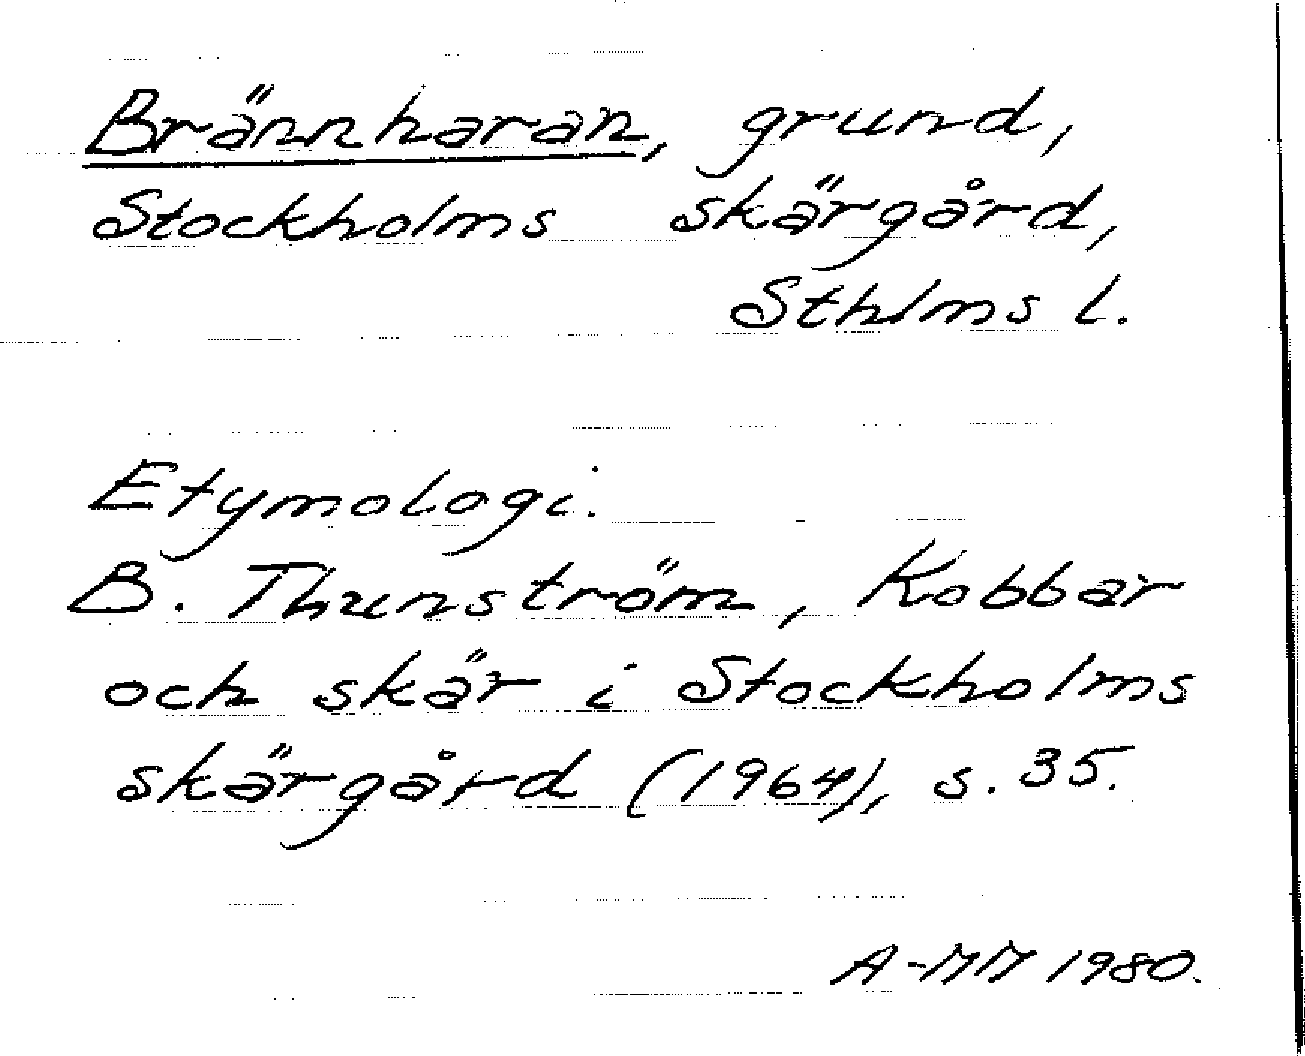 Brännharan, grund,
Stockholms skärgård,
Sthlms l.
Etymologi.
B. Thunström, Kobbar
och skär i Stockholms
skärgård (1964), s. 35.
A-MM 1980.